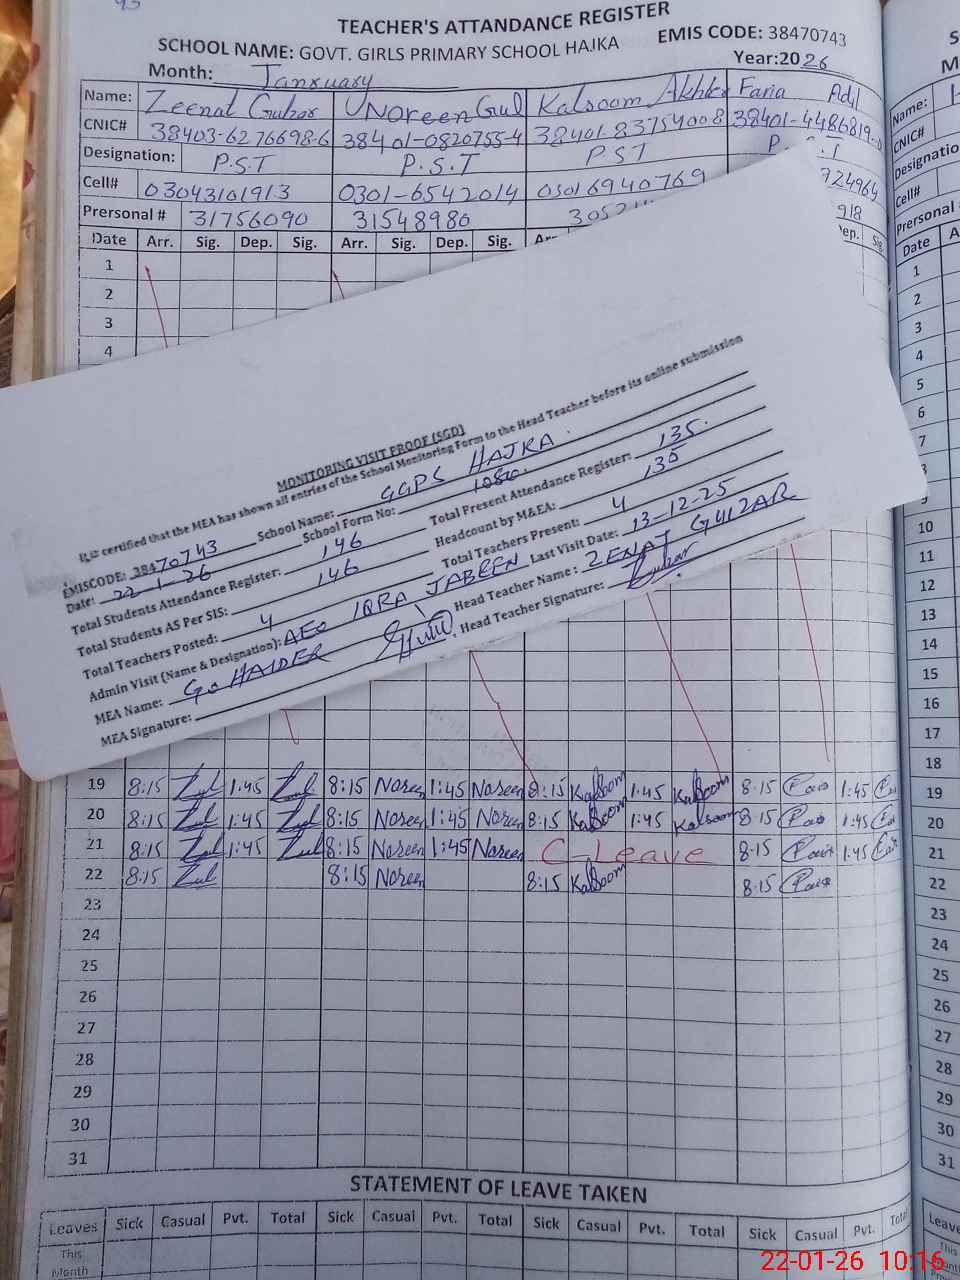 TEACHER'S ATTANDANCE REGISTER
SCHOOL NAME: GOVT. GIRLS PRIMARY SCHOOL HAJKA EMIS CODE: 38470743
Month: Janruary Year:2026
Name: Zeenat Gulzar Noreen Gul Kalsoom Akhter Faria Adil
CNIC# 38403-6276698-6 38401-0820755-4 38401 8375400 8 38401-4486819-
Designation: P.S.T P.S.T PST P.S.T
Cell# 03043101913 0301-6542014 0301 6940769 724964
Prersonal # 31756090 31548980 3052 918
Date Arr. Sig. Dep. Sig. Arr. Sig. Dep. Sig. Dep. Sig.
1
2
3
4
MONITORING VISIT PROOF (SGD)
It is certified that the MEA has shown all entries of the School Monitoring Form to the Head Teacher before its online submission
EMISCODE: 38470743 School Name: GGPS HAJKA.
Date: 22-1-26 School Form No:
Total Students Attendance Register: 146 Total Present Attendance Register: 135.
Total Students AS Per SIS: 146 Headcount by M&EA: 135
Total Teachers Posted: 4 Total Teachers Present: 4
Admin Visit (Name & Designation): AEO IQRA JABEEN Last Visit Date: 13-12-25
MEA Name: G. HAIDER Head Teacher Name: ZENAT GULZAR
MEA Signature: Head Teacher Signature:
10
11
12
13
14
15
16
17
18
19 8:15 1:45 8:15 Noreen 1:45 Noreen 8:15 Kalsoom 1:45 Kalsoom 8:15 1:45
20 8:15 1:45 8:15 Noreen 1:45 Noreen 8:15 Kalsoom 1:45 Kalsoom 8:15 1:45
21 8:15 1:45 8:15 Noreen 1:45 Noreen C-Leave 8:15 1:45
22 8:15 8:15 Noreen 8:15 Kalsoom 8:15
23
24
25
26
27
28
29
30
31
STATEMENT OF LEAVE TAKEN
Leaves Sick Casual Pvt. Total Sick Casual Pvt. Total Sick Casual Pvt. Total Sick Casual Pvt. Total
This Month
Name:
CNIC#
Designatio
Cell#
Prersonal
Date A
1
2
3
4
5
6
7
8
9
10
11
12
13
14
15
16
17
18
19
20
21
22
23
24
25
26
27
28
29
30
31
Leave
22-01-26 10:16